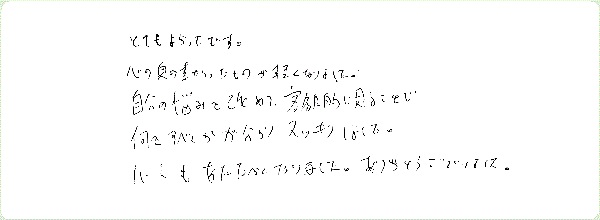 とてもよかったです。
心の奥の重かったものが軽くなりました。
自分の悩みを改めて、客観的に見ることで
何をすべきか分かり スッキリしました。
心も あたたかくなりました。ありがとうございました。